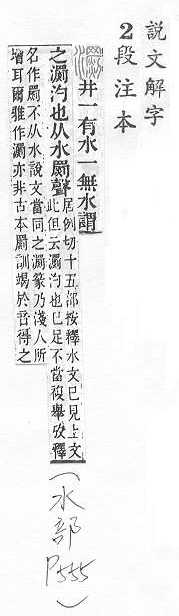 説文解字
2段注本
瀱 井一有水一無水謂
之瀱汋也从水罽聲
居例切十五部按釋水文已見上文
此但云瀱汋也已足不當復舉攷釋
名作罽不从水說文當同之瀱篆乃淺人所
增耳爾雅作瀱亦非古本罽訓竭於音得之
(水部P555)